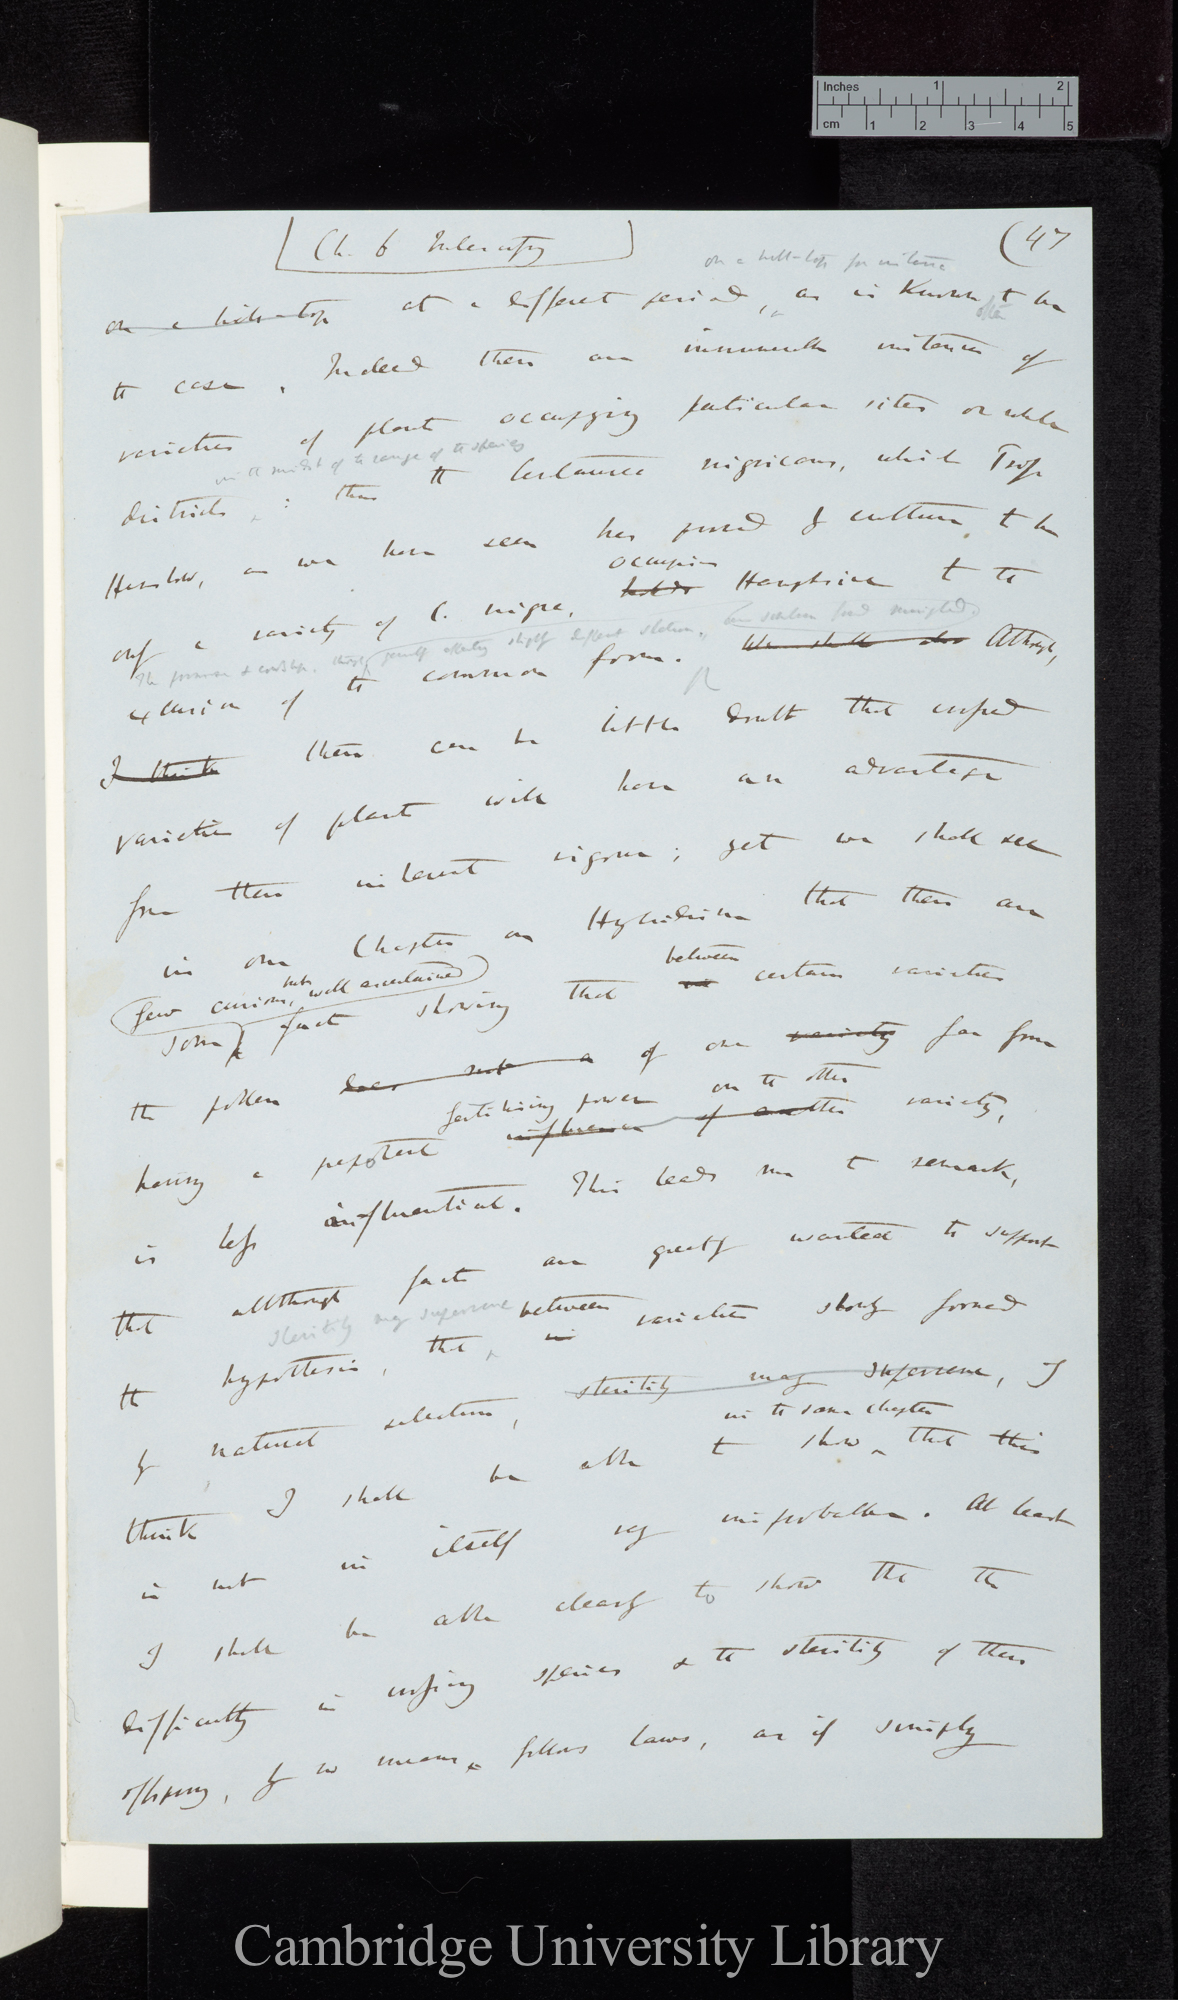 Inches 1 2
cm 1 2 3 4 5
Ch. 6 Intercrossing (47
on a hill-top for instance
on a hill-top at a different period, as is known to be
often
the case. Indeed there are innumerable instances of
varieties of plants occupying particular sites or whole
in the midst of the range of the species
districts: thus the Centaurea nigricans, which Prof
Henslow, as we have seen has proved by culture, to be
occupies
only a variety of C. nigra, holds Hampshire to the
The primrose & cowslip, though generally affecting slightly different stations, are seldom found mingled
exclusion of the common form. We shall also Although,
I think there can be little doubt that crossed
varieties of plants will have an advantage
from their inherent vigour; yet we shall see
in our Chapter on Hybridism that there are
few curious, but well ascertained between
some facts showing that in certain varieties
the pollen does not a of one variety far from
fertilising power on the other
having a prepotent influence of another variety,
is less influential. This leads me to remark,
that allthough facts are greatly wanted to support
sterility may supervene between
the hypothesis, that in varieties slowly formed
by natural selection, sterility may supervene, I
in the same chapter
think I shall be able to show that this
is not in itself very improbable. At least
I shall be able clearly to show that the
difficulty in crossing species & the sterility of their
offspring, by no means follows laws, as if simply
Cambridge University Library